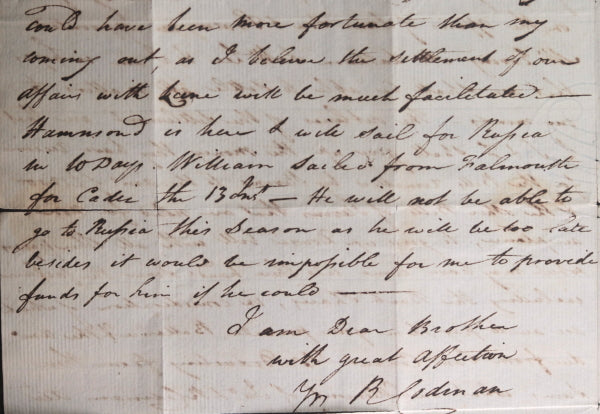 could have been more fortunate than my
coming out, as I believe the settlement of our
affairs with him will be much facilitated —
Hammond is here & will sail for Russia
in 10 Days. William Sailed from Falmouth
for Cadiz the 13 Inst — He will not be able to
go to Russia this Season as he will be too late
besides it would be impossible for me to provide
funds for him if he could —
I am Dear Brother
with great affection
Yrs R Codman